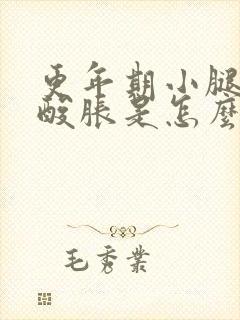 更年期小腿
酸胀是怎麼
毛秀業